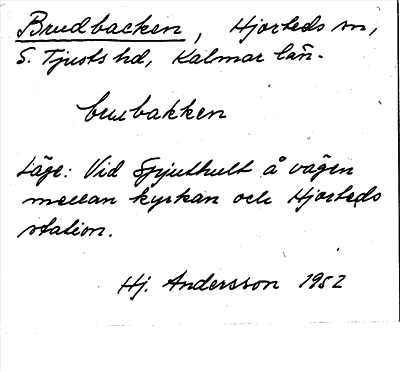 Brudbacken, Hjorteds sn,
S. Tjusts hd, Kalmar län.
bru̵bakken
Läge: Vid Spjuthult å vägen
mellan kyrkan och Hjorteds
station.
Hj. Andersson 1952